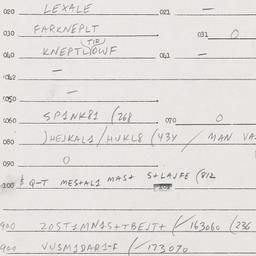 020 LEXALE 021 —
030 FARKNEPLT 031 0
TIP
040 KNEPTLOWF 041 —
042 —
050 —
060 SP1NK81 (268 070 0
080 )HEJKAL1/HUKL8 (434 / MAN VA
090 0
100 $ Q-T MESTAL1 MAST S+LAJFE (812
900 ZOST1MNAS+TBEJT+ (/163060 (236
900 VUSM1DAR1-F (/173070